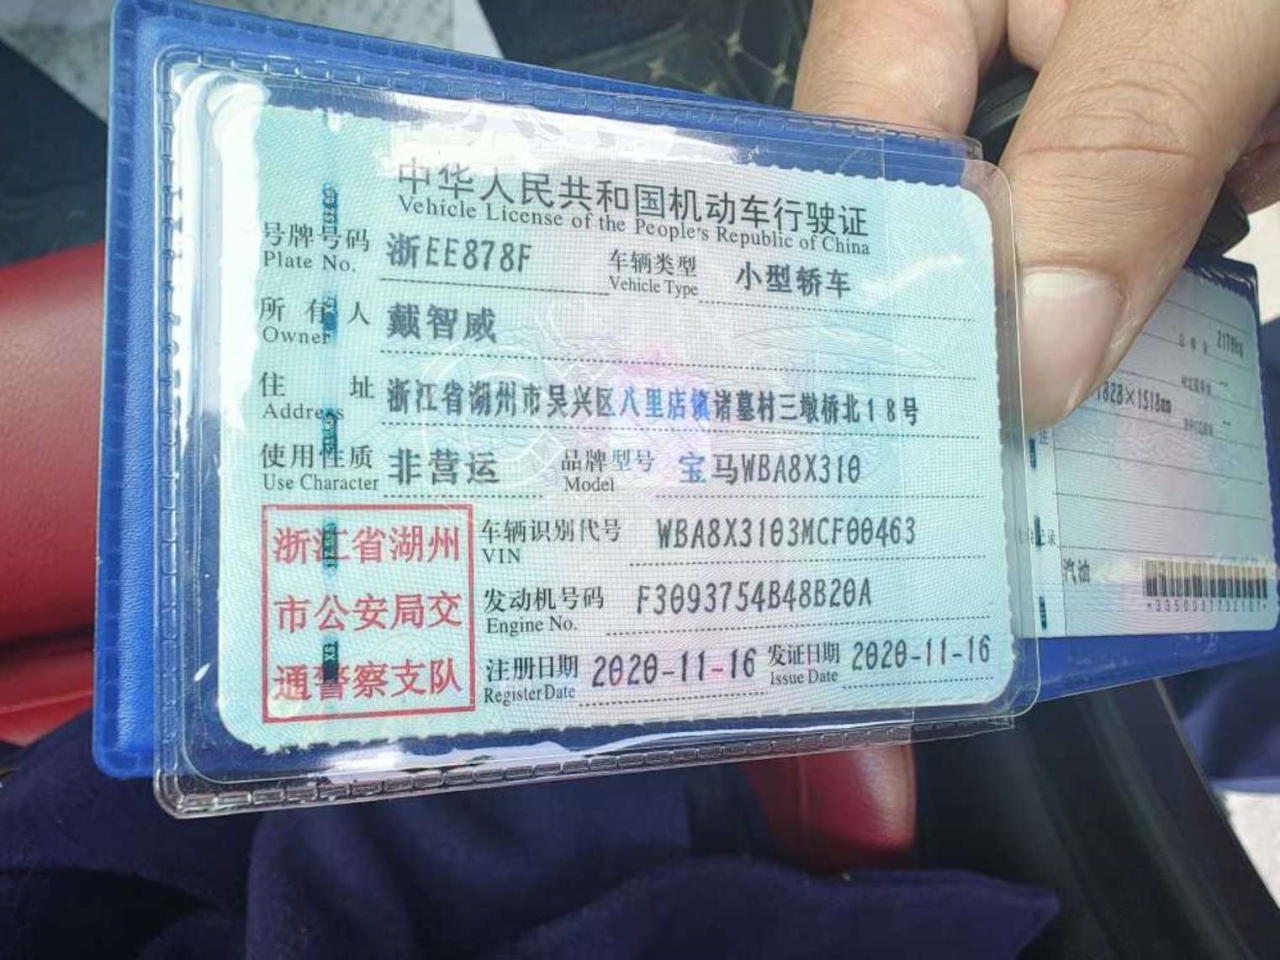 中华人民共和国机动车行驶证
Vehicle License of the People's Republic of China
号牌号码 浙EE878F 车辆类型 小型轿车
Plate No. Vehicle Type
所有人 戴智威
Owner
住址 浙江省湖州市吴兴区八里店镇诸墓村三墩桥北18号
Address
使用性质 非营运 品牌型号 宝马WBA8X310
Use Character Model
浙江省湖州
市公安局交
通警察支队
车辆识别代号 WBA8X3103MCF00463
VIN
发动机号码 F3093754B48B20A
Engine No.
注册日期 2020-11-16 发证日期 2020-11-16
Register Date Issue Date
1828×1518mm
汽油